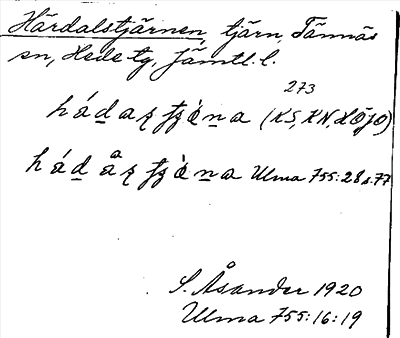 Härdalstjärnen, tjärn, Tännäs
sn, Hede tg, Jämtl. l.
273
(KS, KN, LÖJO)
Ulma 755:28 s. 77
S. Åsander 1920
Ulma 755:16:19